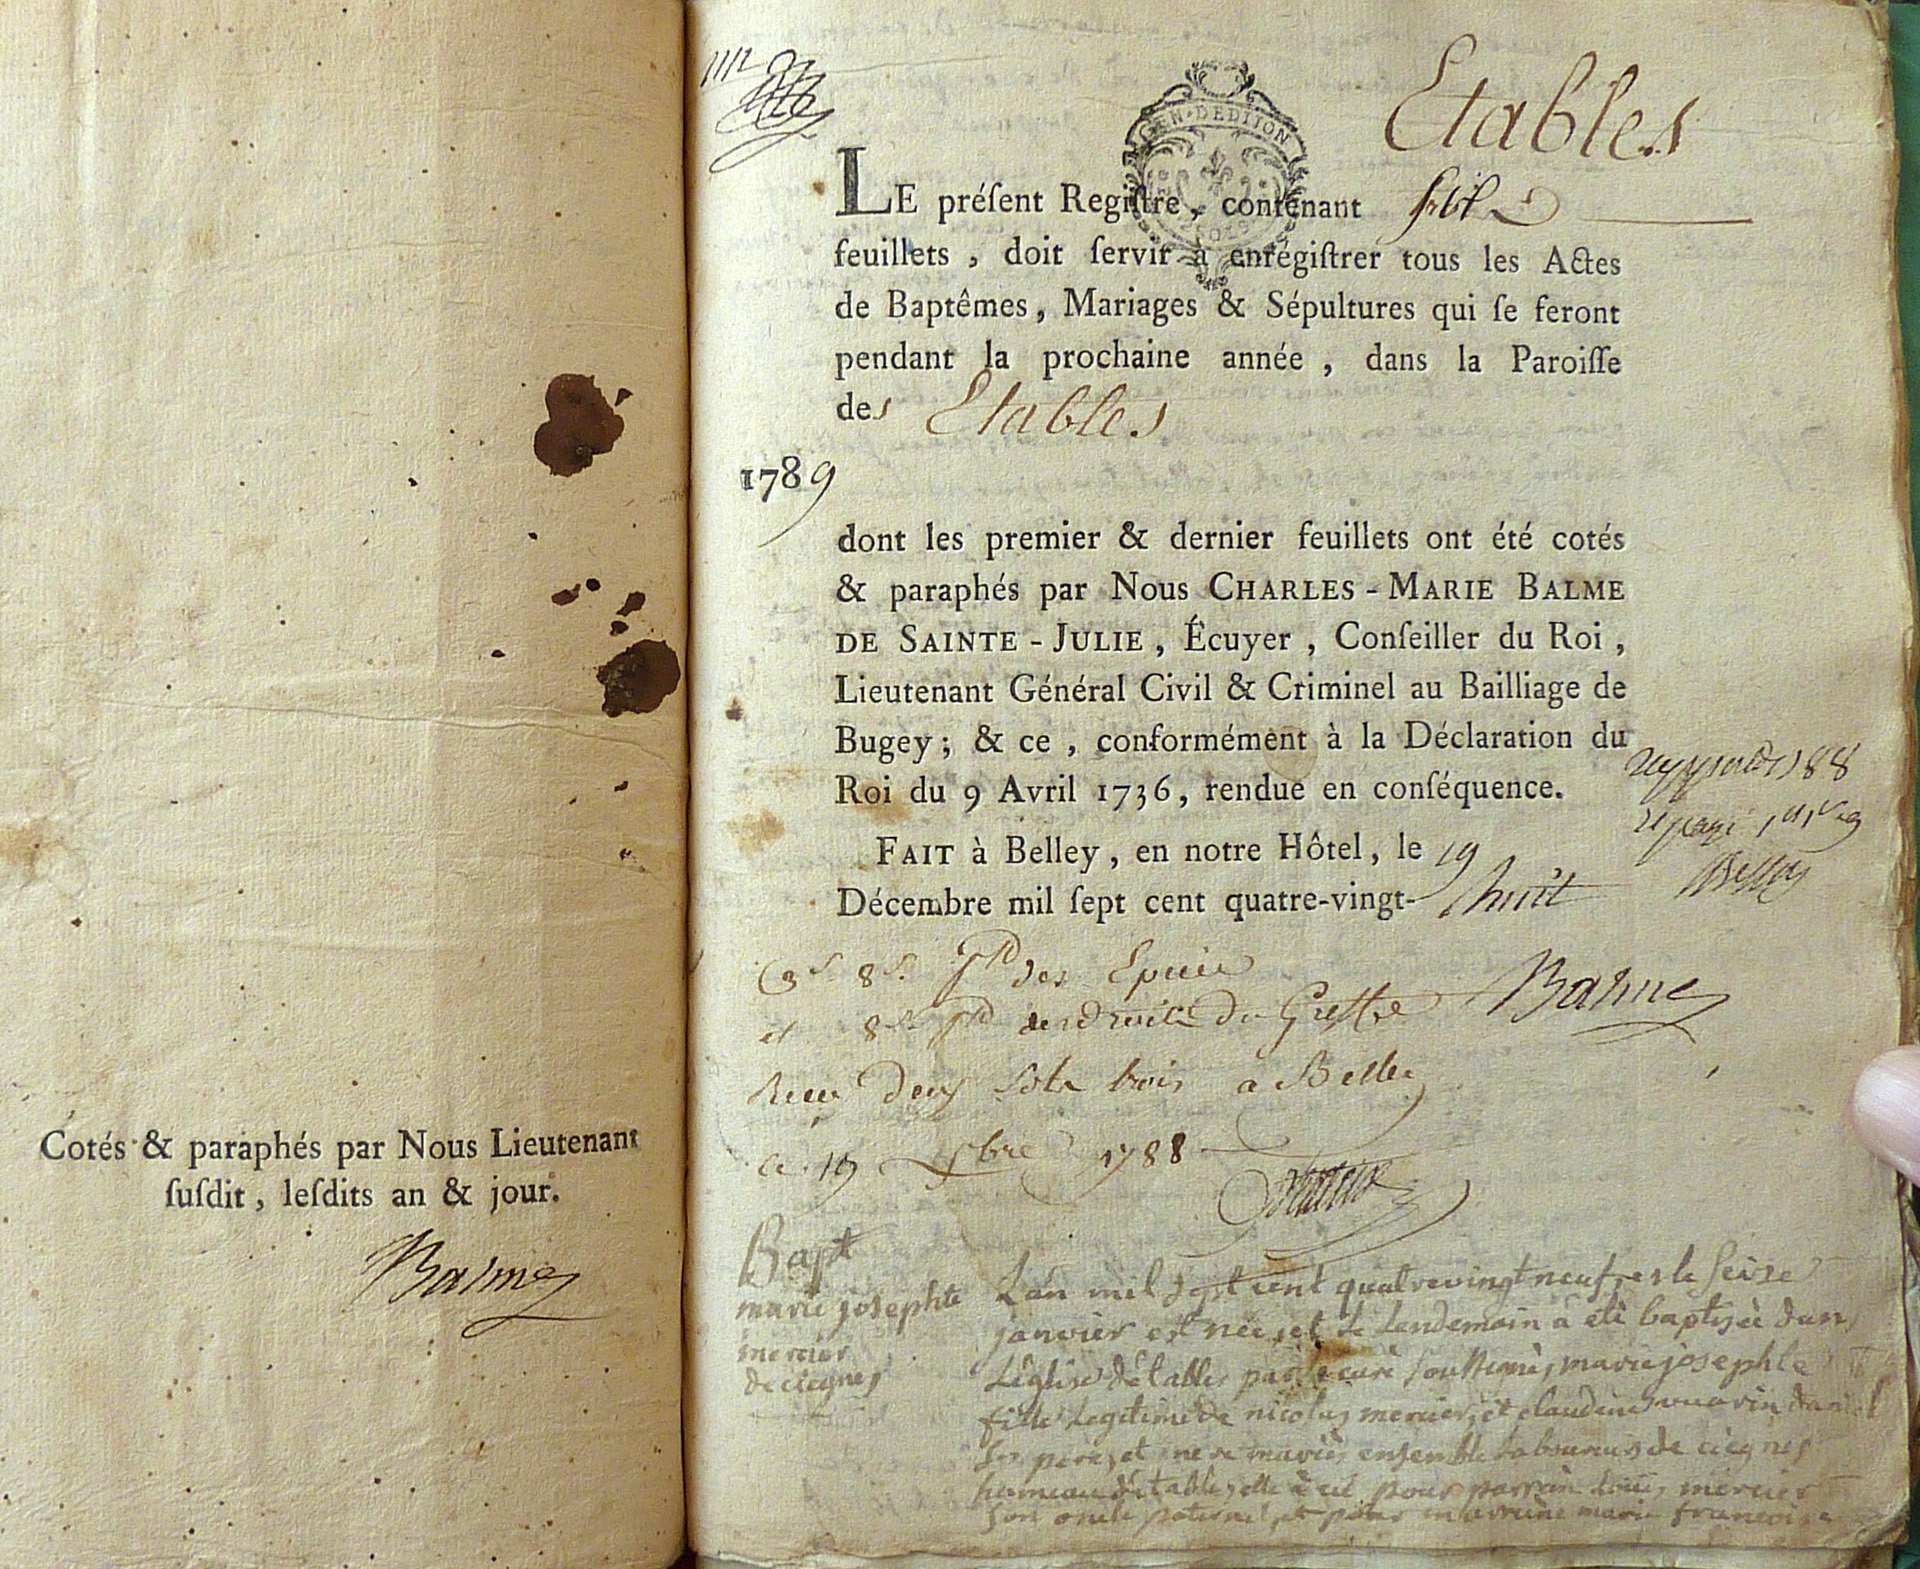 Cotés & paraphés par Nous Lieutenant
ſuſdit, leſdits an & jour.
Balme
Etables
GEN·DEDIJON
LE préſent Regiſtre, contenant
feuillets, doit ſervir à enrégiſtrer tous les Actes
de Baptêmes, Mariages & Sépultures qui ſe feront
pendant la prochaine année, dans la Paroiſſe
des Etables
1789
dont les premier & dernier feuillets ont été cotés
& paraphés par Nous CHARLES-MARIE BALME
DE SAINTE-JULIE, Écuyer, Conſeiller du Roi,
Lieutenant Général Civil & Criminel au Bailliage de
Bugey; & ce, conformément à la Déclaration du
Roi du 9 Avril 1736, rendue en conſéquence.
FAIT à Belley, en notre Hôtel, le 19
Décembre mil ſept cent quatre-vingt-huit
88
Belley
des
Balme
et 8 du Greffe
deux sols trois a Belley
ce 19 xbre 1788
Bapt
marie josephte
mercier
de ciegnes
L'an mil sept cent quatre vingt neuf, et le seize
janvier est née, et le lendemain a eté baptisée dans
L'église d'etables par le curé soussigné, marie josephte
fille legitime de nicolas mercier, et claudine
ses pere, et mere mariés ensemble laboureurs de ciegnes
hameau d'etables, elle a eu pour parrain louis mercier
son oncle paternel, et pour marraine marie francoise